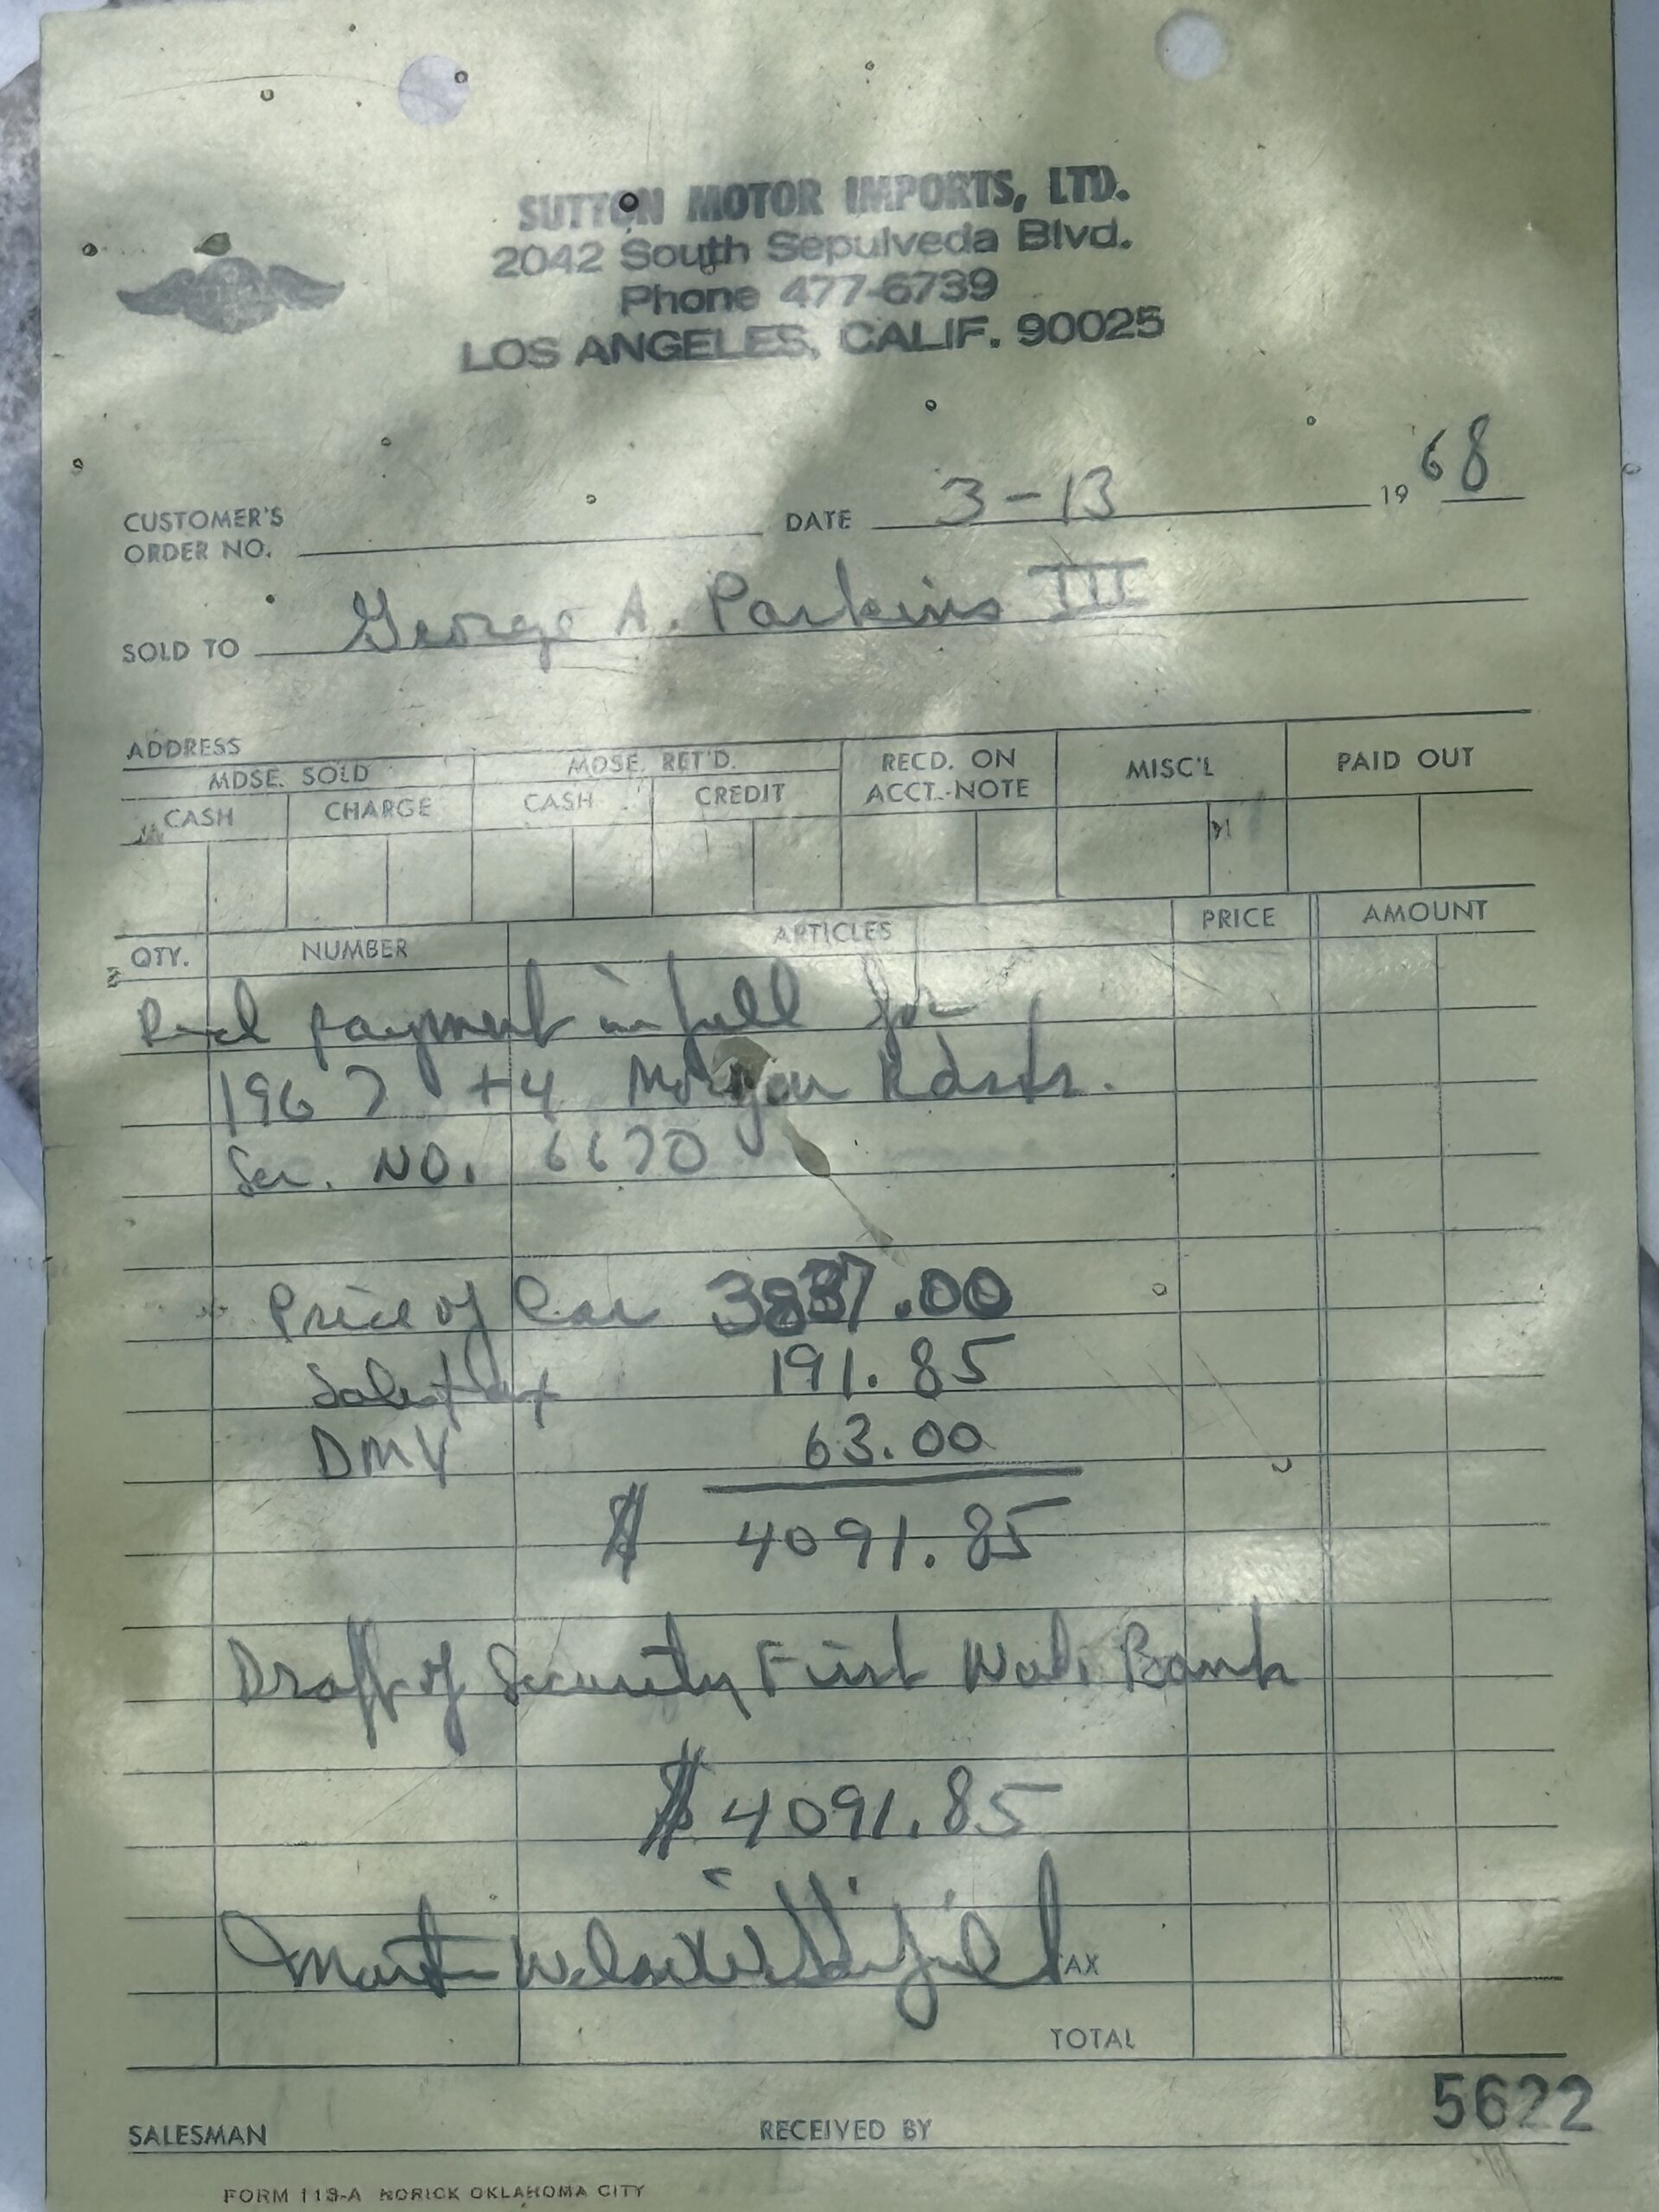 SUTTON MOTOR IMPORTS, LTD.
2042 South Sepulveda Blvd.
Phone 477-6739
LOS ANGELES, CALIF. 90025
CUSTOMER'S
ORDER NO. DATE 3-13 19 68
SOLD TO George A. Parkins III
ADDRESS
MDSE. SOLD MDSE. RET'D. RECD. ON ACCT.-NOTE MISC'L PAID OUT
CASH CHARGE CASH CREDIT
QTY. NUMBER ARTICLES PRICE AMOUNT
Recd payment in full for
1967 +4 Morgan Rdstr.
Ser. NO. 6670
Price of Car 3837.00
Sales tax 191.85
DMV 63.00
$ 4091.85
Draft of Security First Natl Bank
$ 4091.85
TAX
TOTAL
5622
SALESMAN RECEIVED BY
FORM 113-A NORICK OKLAHOMA CITY